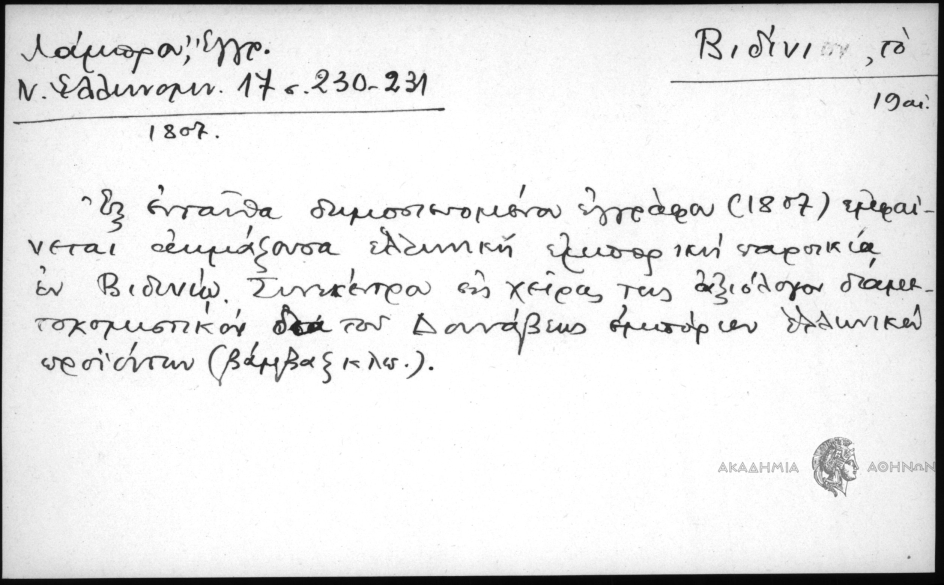 Λάμπρου, Ἔγγρ.
Ν. Ἑλληνομν. 17 σ. 230-231
1807.
Βιδίνιον, τὸ
19 αἰ.
Ἐξ ἐνταῦθα δημοσιευομένου ἐγγράφου (1807) ἐμφαί-
νεται ἀκμάζουσα ἑλληνικὴ ἐμπορικὴ παροικία
ἐν Βιδινίῳ. Συνεκέντρου εἰς χεῖρας της ἀξιόλογον διαμε-
τακομιστικὸν διὰ τοῦ Δουνάβεως ἐμπόριον ἑλληνικῶν
προϊόντων (βάμβαξ κλπ.).
ΑΚΑΔΗΜΙΑ ΑΘΗΝΩΝ